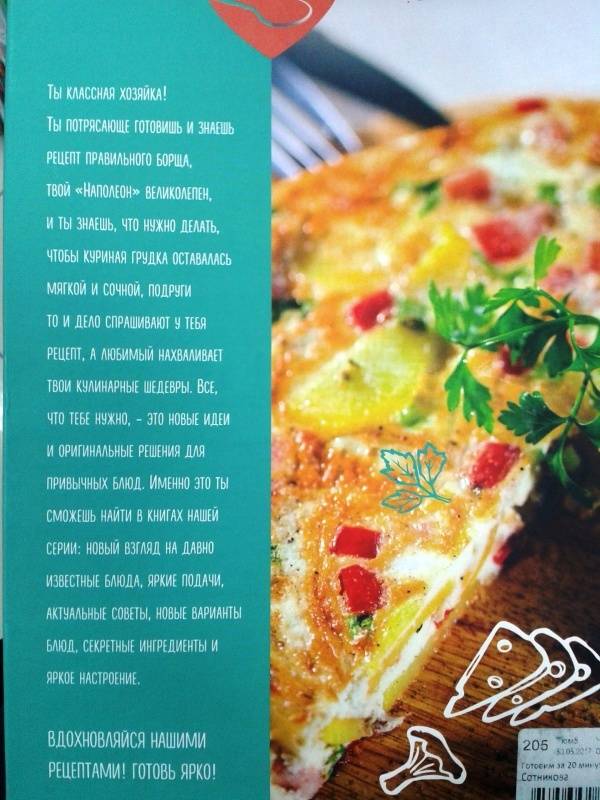 Ты классная хозяйка!
Ты потрясающе готовишь и знаешь
рецепт правильного борща,
твой «Наполеон» великолепен,
и ты знаешь, что нужно делать,
чтобы куриная грудка оставалась
мягкой и сочной, подруги
то и дело спрашивают у тебя
рецепт, а любимый нахваливает
твои кулинарные шедевры. Все,
что тебе нужно, - это новые идеи
и оригинальные решения для
привычных блюд. Именно это ты
сможешь найти в книгах нашей
серии: новый взгляд на давно
известные блюда, яркие подачи,
актуальные советы, новые варианты
блюд, секретные ингредиенты и
яркое настроение.
ВДОХНОВЛЯЙСЯ НАШИМИ
РЕЦЕПТАМИ! ГОТОВЬ ЯРКО!
205
Готовим за 20 мину
Сотникова